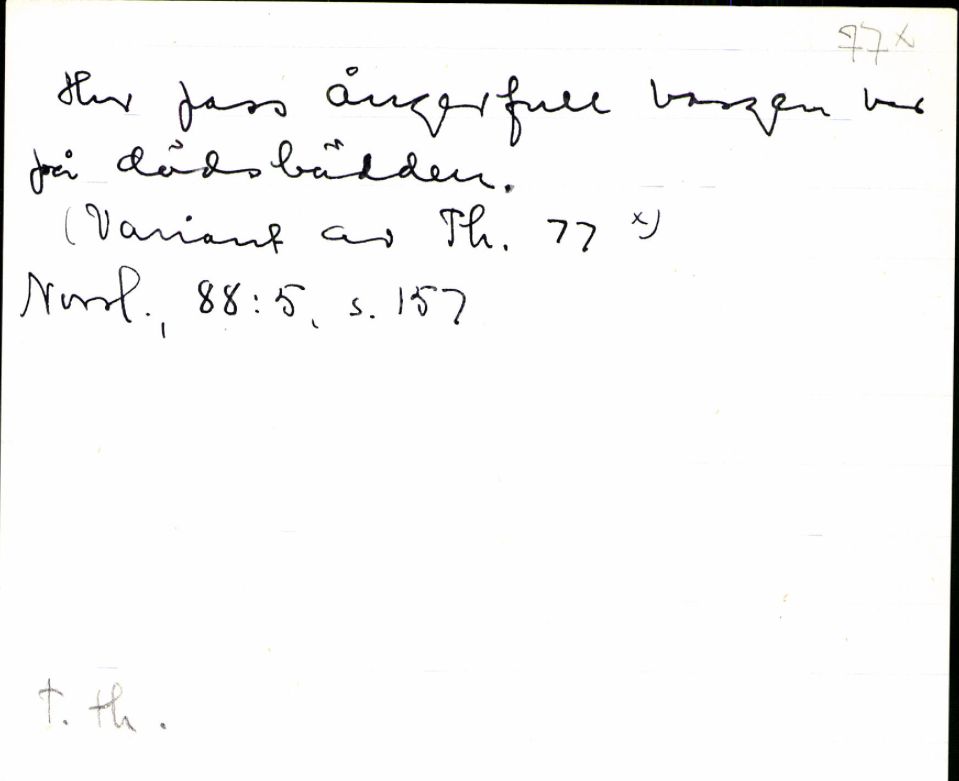 77 x
Hur pass ångerfull vargen var
på dödsbädden.
(Variant av Th. 77 x)
Nvsl., 88:5, s. 157
T. th.